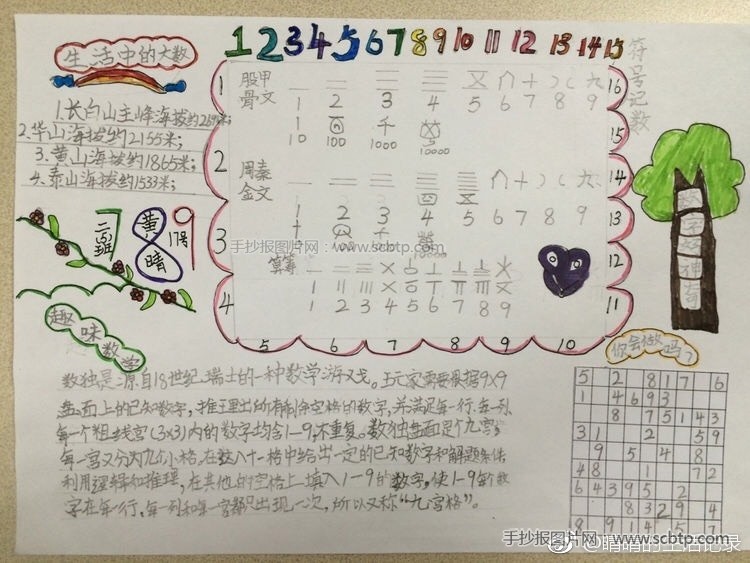 生活中的大数
1.长白山主峰海拔约2691米;
2.华山海拔约2155米;
3.黄山海拔约1865米;
4.泰山海拔约1533米;
1 2 3 4 5 6 7 8 9 10 11 12 13 14 15
符号记数
股甲骨文
1 2 3 4 5 6 7 8 9
10 100 1000 10000
周秦金文
1 2 3 4 5 6 7 8 9
10 100 1000 10000
手抄报图片网:www.scbtp.com
算筹
1 2 3 4 5 6 7 8 9
16
15
14
13
12
11
1
2
3
4
5 6 7 8 9 10
班
黄晴
17号
趣味数学
你会做吗?
数独是源自18世纪瑞士的一种数学游戏。玩家需要根据9×9
盘面上的已知数字,推理出所有剩余空格的数字,并满足每一行.每一列.
每一个粗线宫(3×3)内的数字均含1—9,不重复。数独盘面是个九宫,
每一宫又分为九个小格。在这八十一格中给出一定的已知数字和解题条件
利用逻辑和推理,在其他的空格上填入1—9的数字,使1-9每个数
字在每一行,每一列和每一宫都只出现一次,所以又称“九宫格”。
5 2 8 1 7 6
1 4 6 9 3
8 7 5 1 4 3
3 1 2 5 9
9 5 4 8
4 8 1 7 2
6 4 3 9 5 2
8 3 2 9 4
8 9 1 4 5 7
手抄报图片网:www.scbtp.com
@晴晴的生活记录